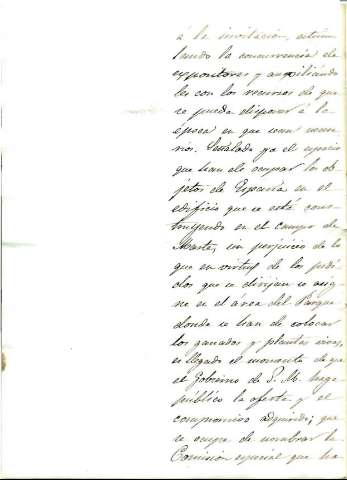 á la invitacion, estimu
lando la concurrencia de
expositores y auxiliándo
les con los recursos de que
se pueda disponer á la
época en que sean nece
rios. Señalado ya el espacio
que han de ocupar los ob
jetos de España en el
edificio que se está cons
truyendo en el campo de
Marte, sin perjuicio de lo
que en virtud de los pedi
dos que se dirijan se asig
ne en el área del Parque
donde se han de colocar
los ganados y plantas vivas,
es llegado el momento de que
el Gobierno de S. M. haga
público la oferta y el
compromiso adquirido; que
se ocupe de nombrar la
Comision especial que ha